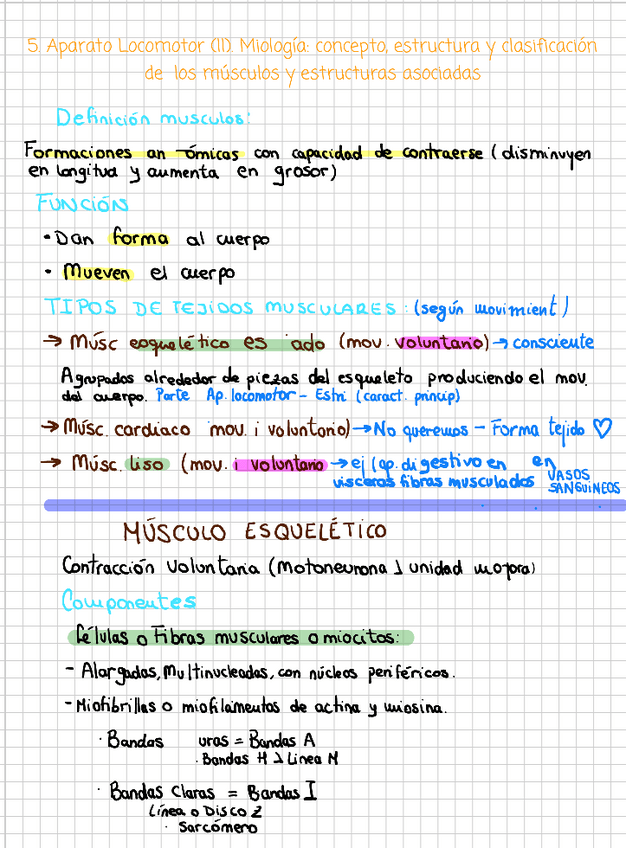 5. Aparato Locomotor (II). Miología: concepto, estructura y clasificación
de los músculos y estructuras asociadas
Definición musculos:
Formaciones an ómicas con capacidad de contraerse (disminuyen
en longitud y aumenta en grosor)
FUNCIÓN
• Dan forma al cuerpo
• Mueven el cuerpo
TIPOS DE TEJIDOS MUSCULARES: (según movimient)
→ Músc esquelético es ado (mov. voluntario) → consciente
Agrupados alrededor de piezas del esqueleto produciendo el mov.
del cuerpo. Parte Ap. locomotor - Estri (caract. princip)
→ Músc. cardiaco mov. i voluntario) → No queremos - Forma tejido ♡
→ Músc. liso (mov. i voluntario → ej (ap. digestivo en en
visceras fibras musculados VASOS
SANGUINEOS
MÚSCULO ESQUELÉTICO
Contracción Voluntaria (Motoneurona unidad motora)
Componentes
Células o Fibras musculares o miocitos:
- Alargadas, Multinucleadas, con núcleos periféricos.
- Miofibrillas o miofilamentos de actina y miosina.
· Bandas uras = Bandas A
· Bandas H Linea M
· Bandas Claras = Bandas I
Línea o Disco Z
· Sarcómero